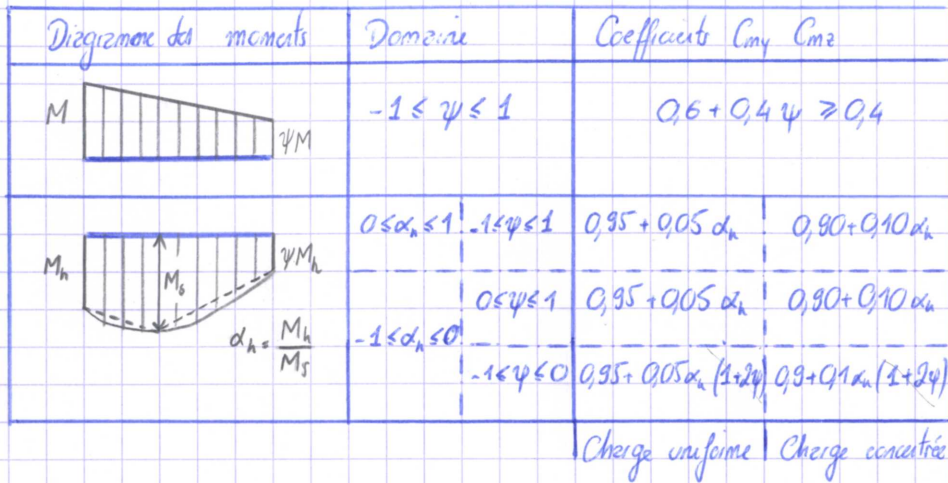 Diagramme des moments Domaine Coefficients Cmy Cmz
M ψM -1 ≤ ψ ≤ 1 0,6 + 0,4 ψ ≥ 0,4
0 ≤ αh ≤ 1 -1 ≤ ψ ≤ 1 0,95 + 0,05 αh 0,90 + 0,10 αh
Mh Ms ψMh
0 ≤ ψ ≤ 1 0,95 + 0,05 αh 0,90 + 0,10 αh
αh = Mh / Ms -1 ≤ αh ≤ 0
-1 ≤ ψ ≤ 0 0,95 + 0,05 αh (1+2ψ) 0,9 + 0,1 αh (1+2ψ)
Charge uniforme Charge concentrée